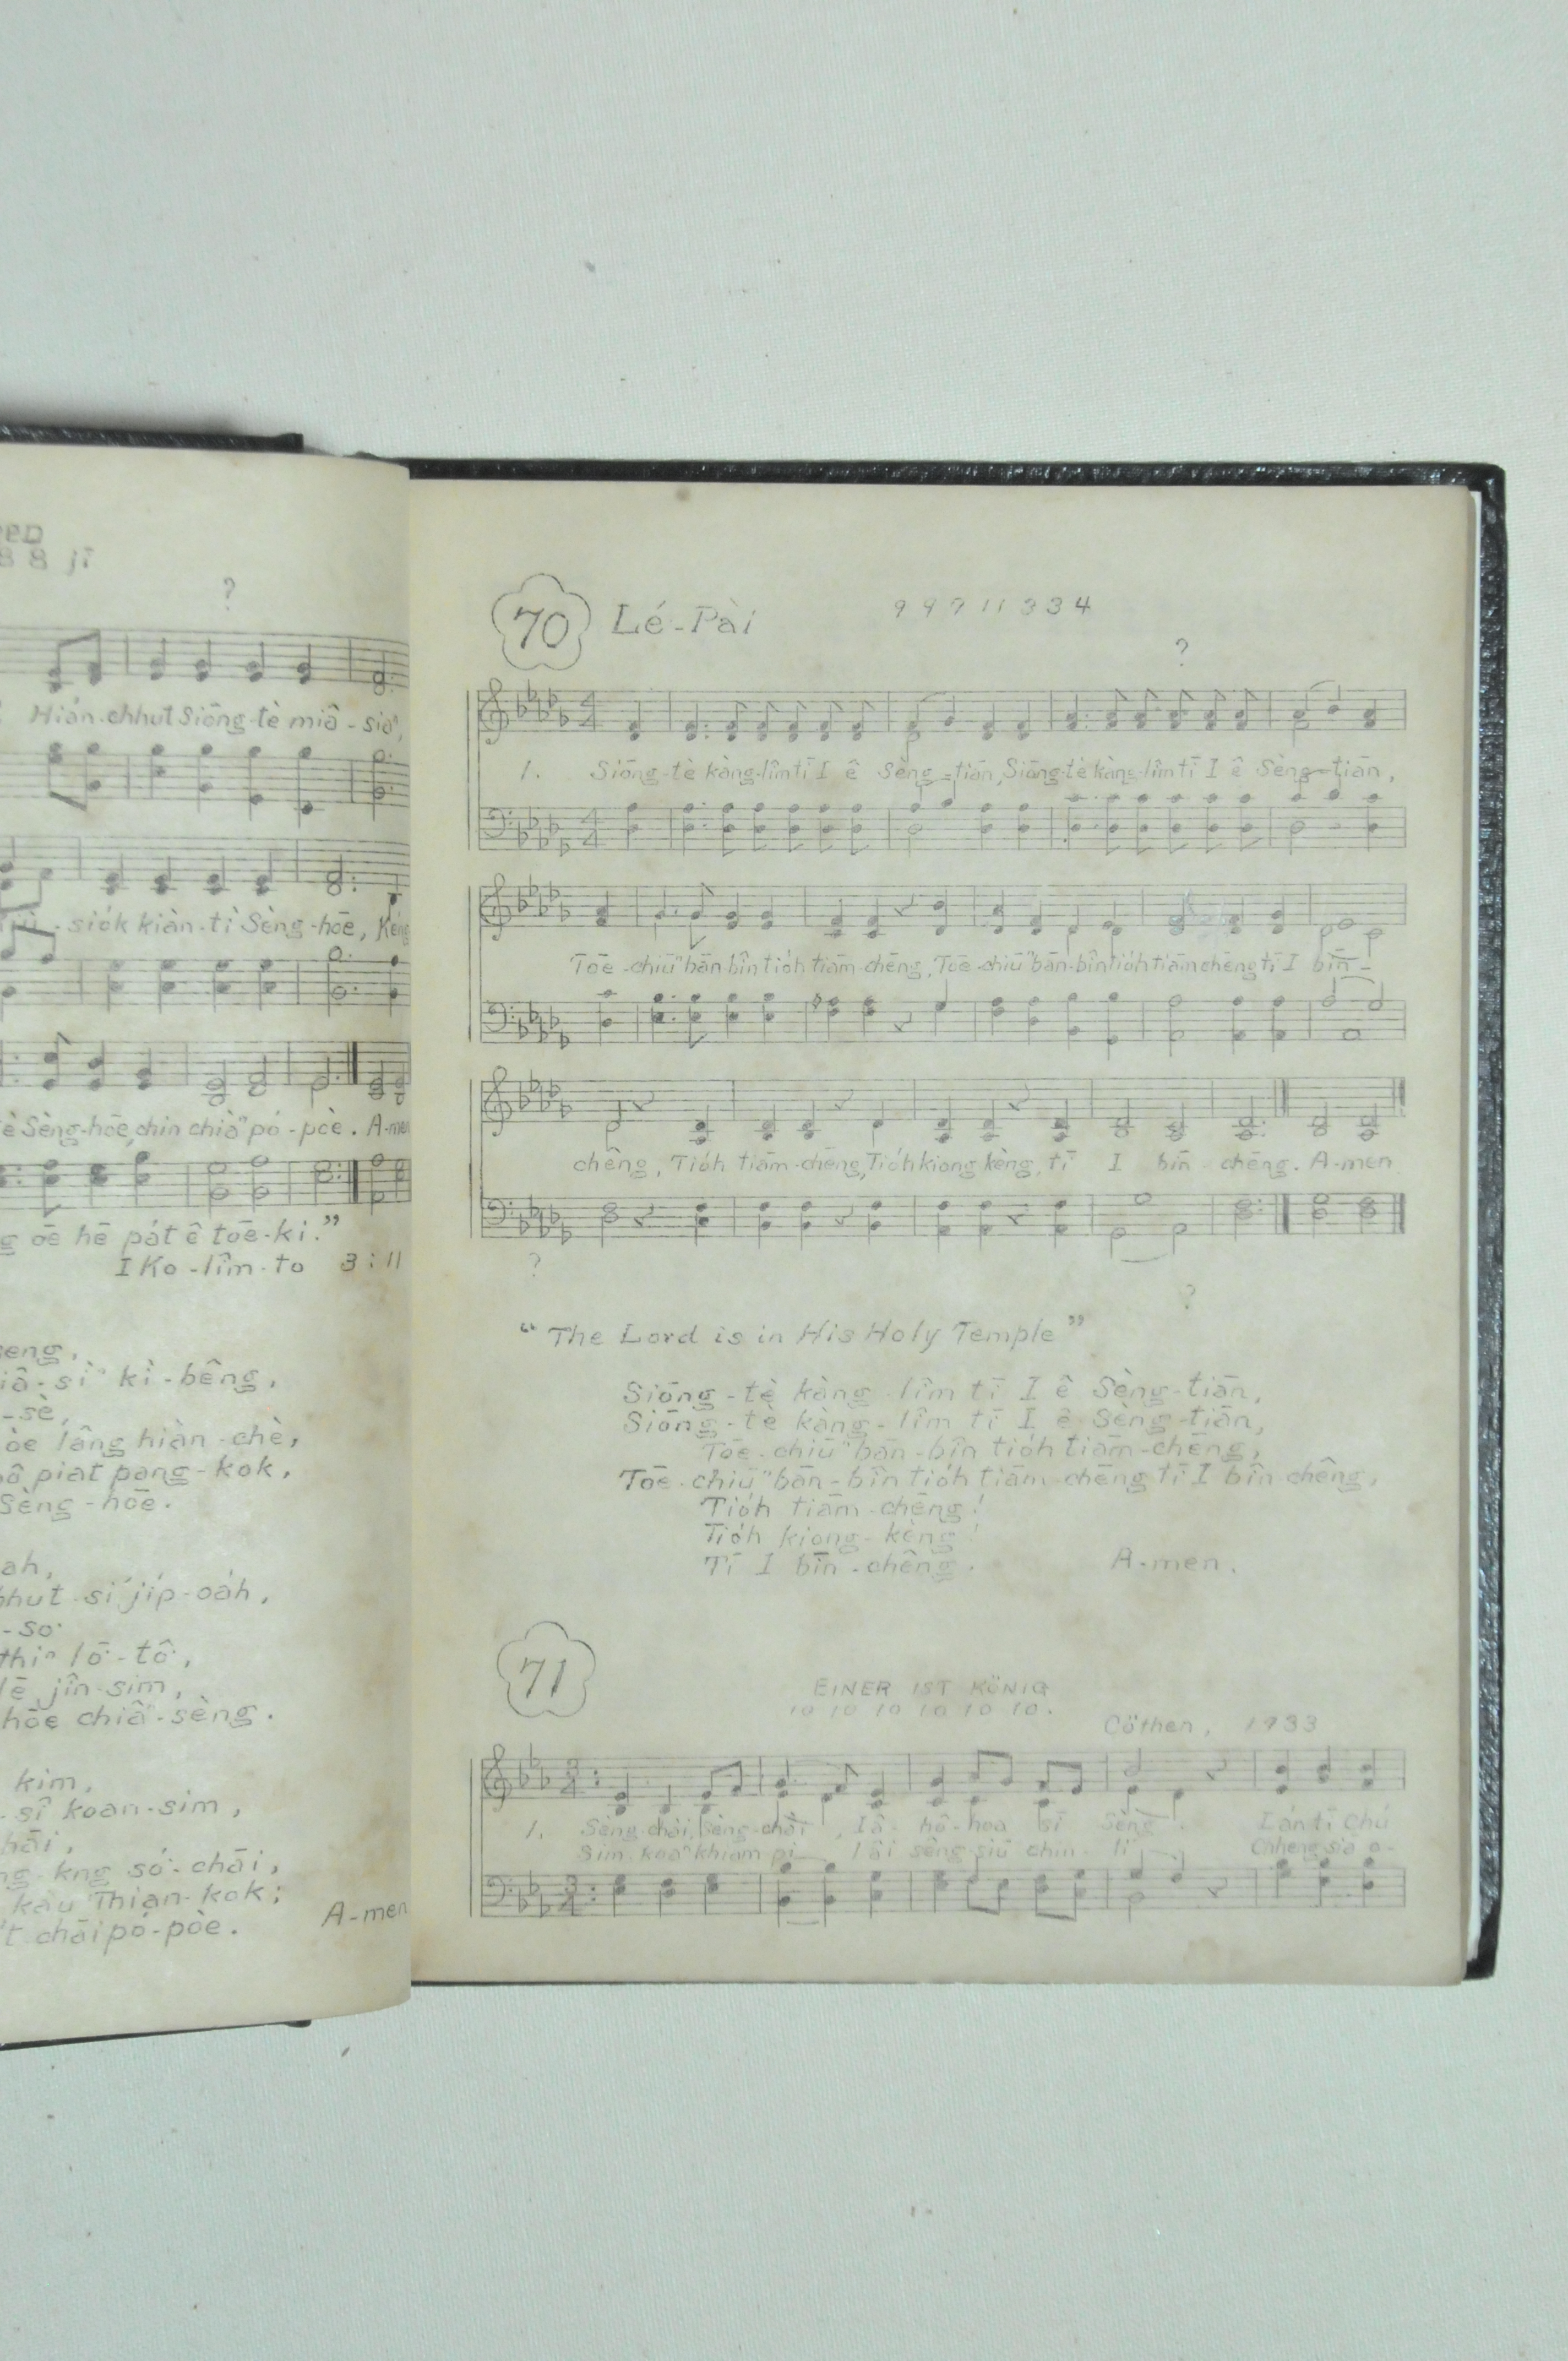 8 8 jī
?
Hián-chhut Siōng-tè miâ-siaⁿ,
-siók kiàn-tì Sèng-hōe, Kèng
è Sèng-hōe, chin chiàⁿ pó-pòe. A-men
g ōe hē pát ê tōe-ki."
I Ko-lîm-to 3:11
iâ-sìⁿ kì-bêng,
-sè,
òe lâng hiàn-chè,
piat pang-kok,
Sèng-hōe.
ah,
hhut-sí ji̍p-oa̍h,
-so
thiⁿ lō-tô,
jîn-sim,
hōe chiâⁿ-sèng.
kim,
-sî koan-sim,
hāi,
ng-kng só-chāi,
kàu Thian-kok;
t chāi pó-pòe. A-men
70 Lé-Pài 9 9 9 11 3 3 4
?
1. Siōng-tè kàng-lîm tī I ê Sèng-tiān, Siōng-tè kàng-lîm tī I ê Sèng-tiān,
Tōe-chiūⁿ bān-bîn tio̍h tiām-chēng, Tōe-chiūⁿ bān-bîn tio̍h tiām-chēng tī I bīn-
chêng, Tio̍h tiām-chēng, Tio̍h kiong-kèng, tī I bīn chêng. A-men
?
?
"The Lord is in His Holy Temple"
Siōng-tè kàng-lîm tī I ê Sèng-tiān,
Siōng-tè kàng-lîm tī I ê Sèng-tiān,
Tōe-chiūⁿ bān-bîn tio̍h tiām-chēng,
Tōe-chiūⁿ bān-bîn tio̍h tiām-chēng tī I bīn chêng.
Tio̍h tiām-chēng!
Tio̍h kiong-kèng!
Tī I bīn-chêng. A-men.
71
EINER IST KÖNIG
10 10 10 10 10 10.
Cöthen, 1733
1. Sèng-chāi, Sèng-chāi, Iâ-hô-hoa sī Sèng. Lán tī Chú
Sim-koaⁿ khiam-pi, lâi sêng-siū chin-lí, Chheng-sia o-